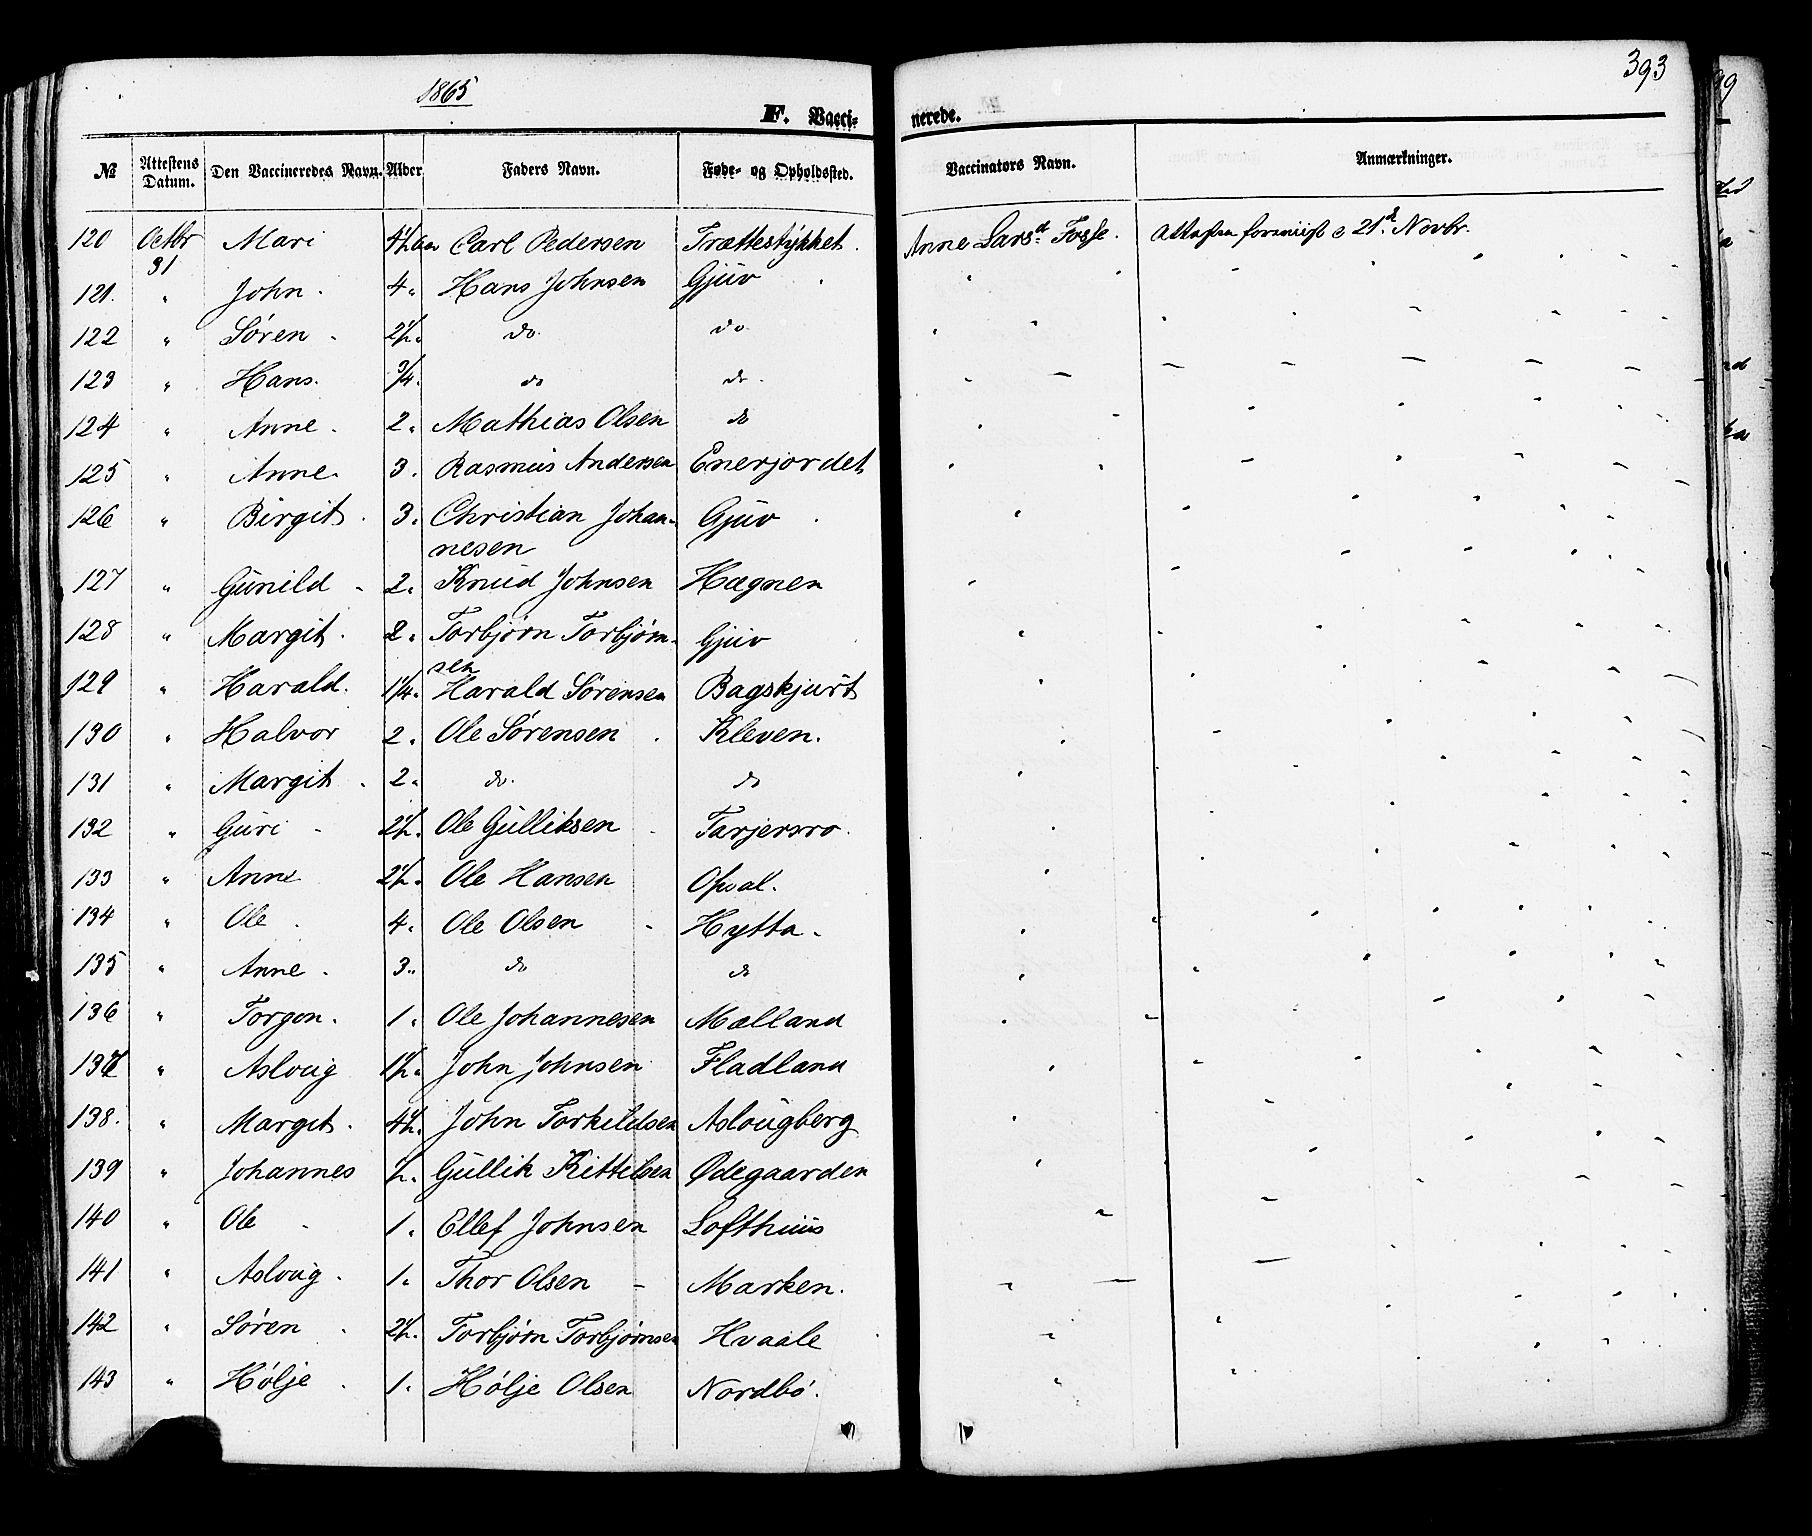 1865
393
F. Vacci-
nerede.
№ Attestens Datum. Den Vaccineredes Navn. Alder Faders Navn. Føde- og Opholdssted. Vaccinators Navn. Anmærkninger.
120 Octbr 31 Mari 4½ Aar Carl Pedersen Trættestykket. Anne Larsd. Fosse. 21d. Novbr.
121. " John. 4 " Hans Johnsen Gjuv
122 " Søren 2½ " do do
123 " Hans. 3/4. do do.
124 " Anne. 2 " Mathias Olsen do
125 " Anne 3. Rasmus Andersen Enerjordet
126 " Birgit. 3 " Christian Johan-
nesen Gjuv
127 " Gunild 2 " Knud Johnsen Hægnen
128 " Margit. 2 " Torbjørn Torbjørn-
sen Gjuv
129 " Harald. 1¼ " Harald Sørensen Bagskjurt
130 " Halvor 2 " Ole Sørensen Kleven.
131 " Margit 2 " do. do
132 " Guri 2½ " Ole Gulliksen
133 " Anne 2½ " Ole Hansen Opsal.
134 " Ole 4 " Ole Olsen Hytta
135 " Anne. 3 " do do
136 " Torgon. 1 " Ole Johannesen Mælland
137 " Asloug 1½ " John Johnsen Fladland
138. " Margit. 4½ " John Torkildsen Aslougberg
139 " Johannes ½ " Gullik Kittelsen Ødegaarden
140 " Ole 1 " Ellef Johnsen Lofthuus
141 " Asloug 1 " Thor Olsen Marken.
142 " Søren 2½ " Torbjørn Torbjørnsen Hvaale
143 " Hølje 1 " Hølje Olsen Nordbø.